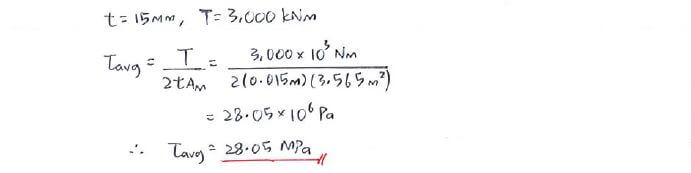 t = 15mm, T = 3,000 kNm
τavg = T / 2tAm = 3,000 × 10³ Nm / 2(0.015m)(3.565m²)
= 28.05 × 10⁶ Pa
∴ τavg = 28.05 MPa